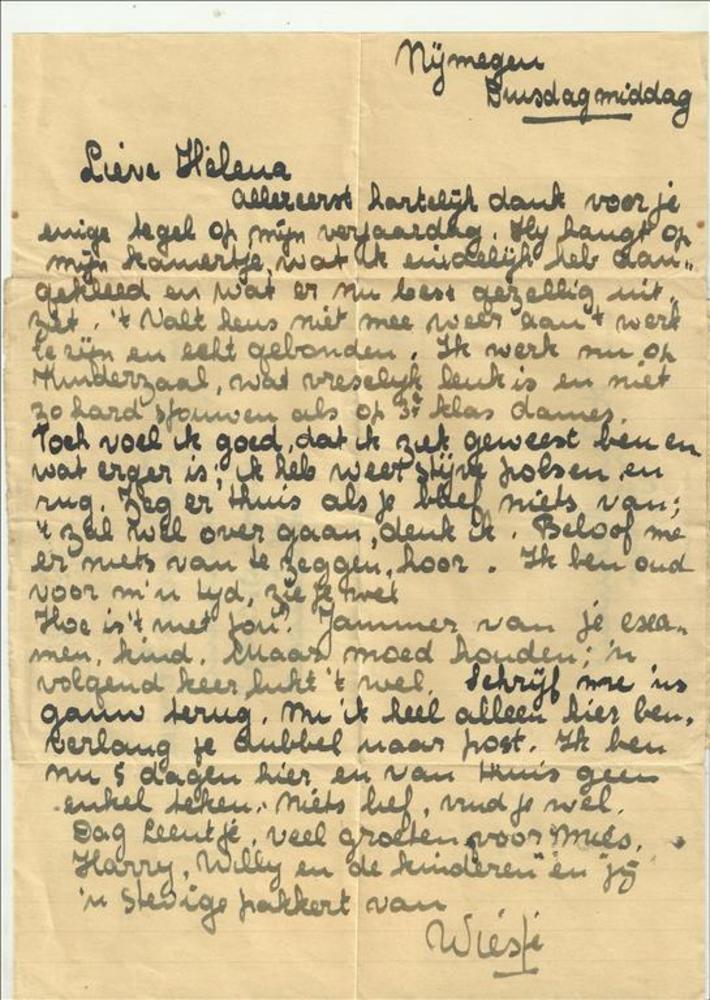 Nijmegen
Dinsdagmiddag
Lieve Helena
Allereerst hartelijk dank voor je
enige tegel op mijn verjaardag. Hy hangt op
mijn kamertje, wat ik eindelijk heb aan„
gekleed en wat er nu best gezellig uit„
ziet. 't Valt heus niet mee weer aan 't werk
te zijn en echt gebonden. Ik werk nu op
Kinderzaal, wat vreselijk leuk is en niet
zo hard sjouwen als op 3e klas dames.
Toch voel ik goed, dat ik ziek geweest ben en
wat erger is; ik heb weer stijve polsen en
rug. Zeg er thuis als je blieft niets van;
't zal wel over gaan, denk ik. Beloof me
er niets van te zeggen, hoor. Ik ben oud
voor m'n tyd, zie je wel
Hoe is 't met jou? Jammer van je exa„
men, kind. Maar moed houden; 'n
volgend keer lukt 't wel. Schrijf me 'ns
gauw terug. Nu ik heel alleen hier ben,
verlang je dubbel naar post. Ik ben
nu 5 dagen hier en van thuis geen
enkel teken. Niets lief, vind je wel.
Dag Leentje, veel groeten voor Mies,
Harry, Willy en de kinderen en jij
'n stevige pakkert van
Wiesje